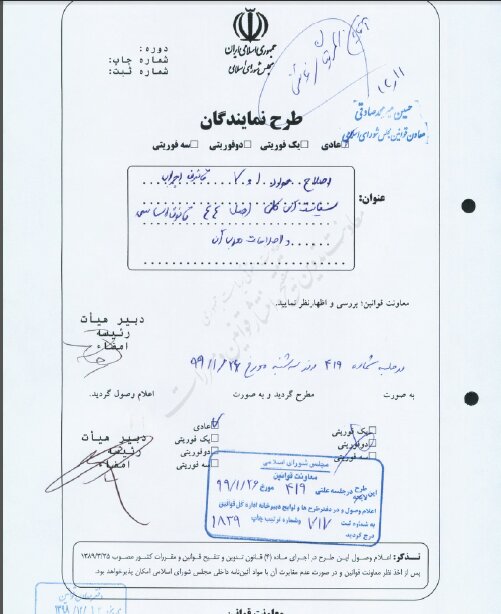 جمهوری اسلامی ایران
مجلس شورای اسلامی
دوره :
شماره چاپ:
شماره ثبت:
طرح نمایندگان
حسین میرمحمدصادقی
معاون قوانین مجلس شورای اسلامی
عادی یک فوریتی دوفوریتی سه فوریتی
عنوان:
اصلاح مواد ۱ و ۷ قانون اجرای
سیاست‌های کلی اصل ۴۴ قانون اساسی
و اصلاحات بعدی آن
معاونت قوانین؛ بررسی و اظهارنظر نمایید.
دبیر هیأت
رئیسه
امضاء
در جلسه شماره ۴۱۹ روز سه‌شنبه مورخ ۹۹/۱/۲۶
به صورت مطرح گردید و به صورت اعلام وصول گردید.
یک فوریتی
دوفوریتی
سه فوریتی
عادی
یک فوریتی
دوفوریتی
سه فوریتی
دبیر هیأت
رئیسه
امضاء
مجلس شورای اسلامی
معاونت قوانین
این طرح لایحه در جلسه علنی ۴۱۹ مورخ ۹۹/۱/۲۶
اعلام وصول و در دفتر طرح ها و لوایح دبیرخانه اداره کل قوانین
به شماره ثبت ۷۱۷ و شماره ترتیب چاپ ۱۸۳۹
درج گردید
تذکر: اعلام وصول این طرح در اجرای ماده (۴) قانون تدوین و تنقیح قوانین و مقررات کشور مصوب ۱۳۸۹/۳/۲۵
پس از اخذ نظر معاونت قوانین و در صورت عدم مغایرت آن با مواد آئین‌نامه داخلی مجلس شورای اسلامی امکان پذیر خواهد بود.
معاونت قوانین